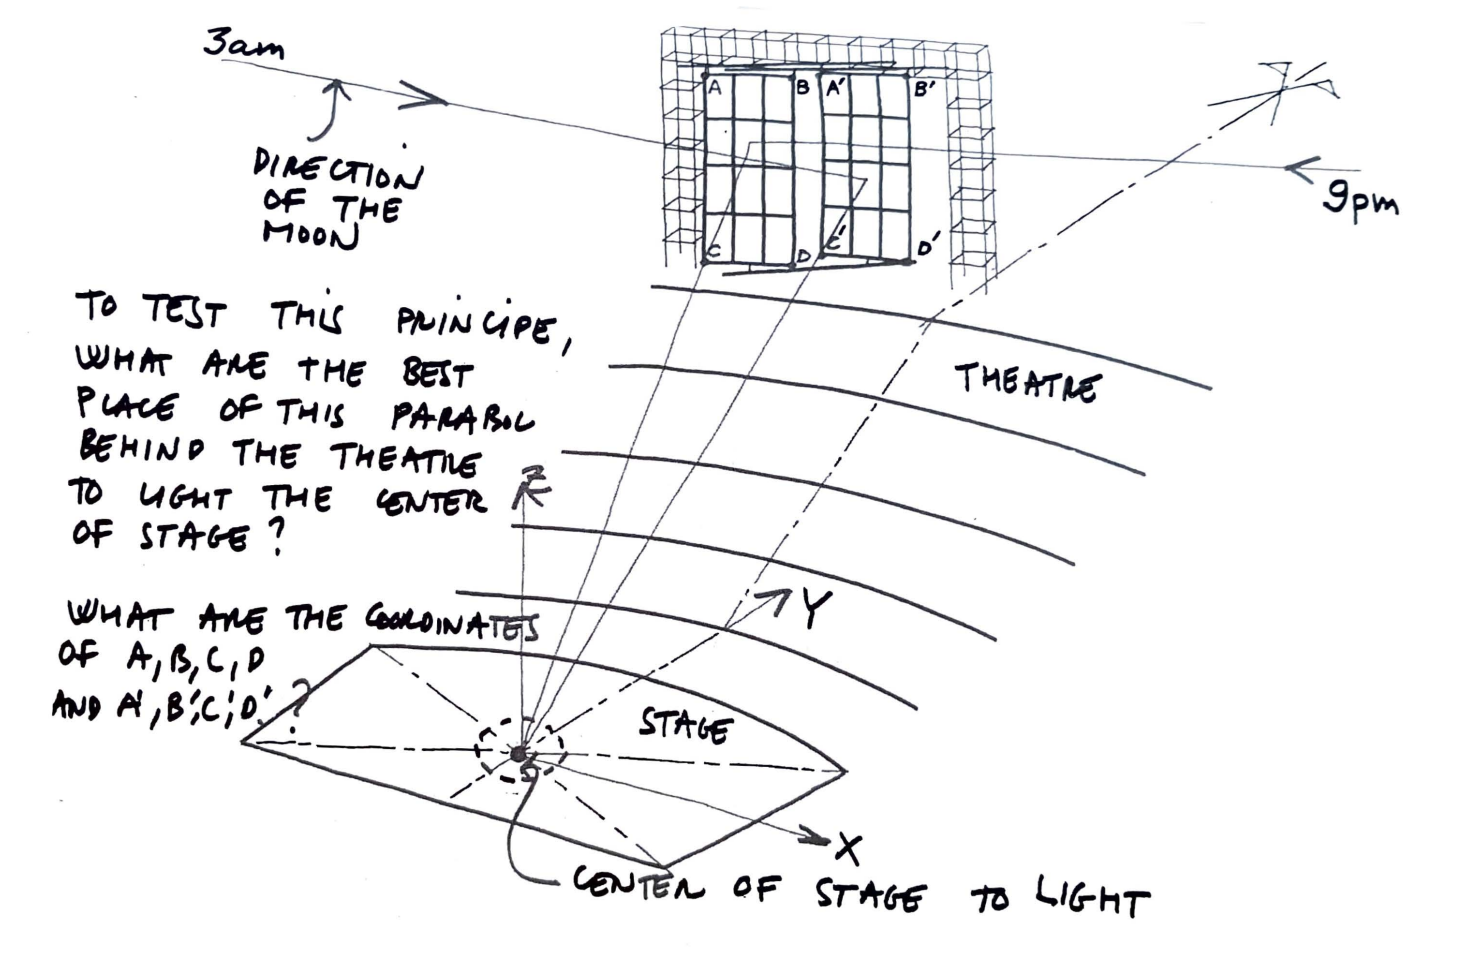 3am
A
B
A'
B'
DIRECTION
OF THE
MOON
9pm
C
D
C'
D'
TO TEST THIS PRINCIPE,
WHAT ARE THE BEST
PLACE OF THIS PARABOL
BEHIND THE THEATRE
TO LIGHT THE CENTER
OF STAGE?
THEATRE
Z
WHAT ARE THE COORDINATES
OF A, B, C, D
AND A', B', C', D'. ?
Y
STAGE
X
CENTER OF STAGE TO LIGHT